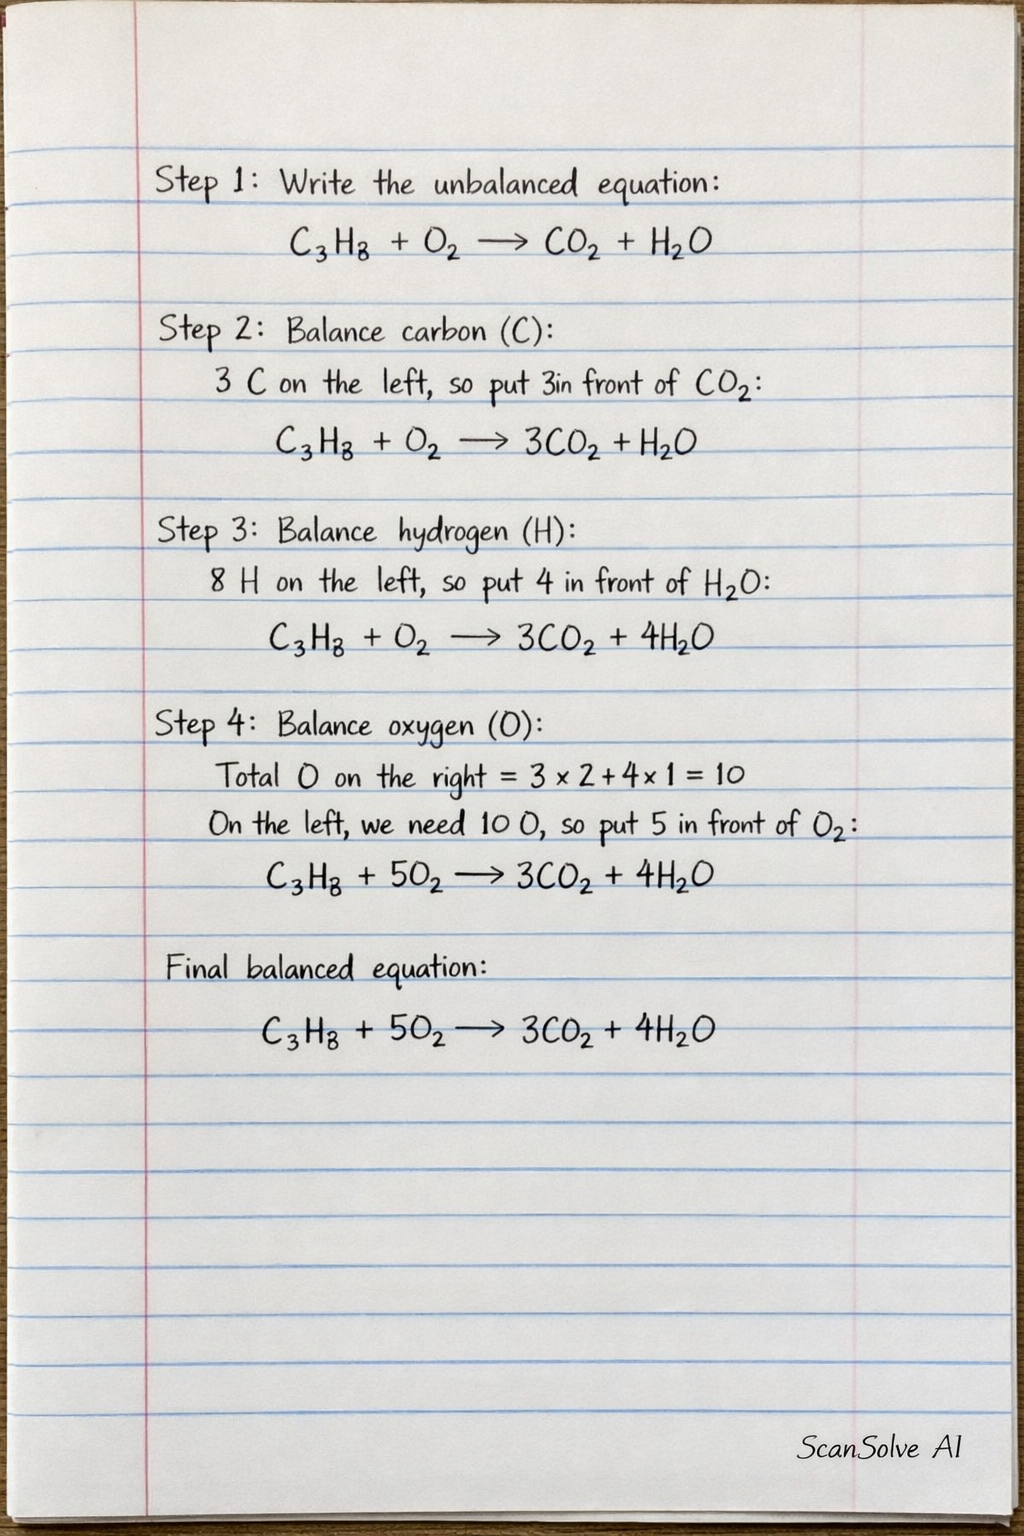 Step 1: Write the unbalanced equation:
C₃H₈ + O₂ ⟶ CO₂ + H₂O
Step 2: Balance carbon (C):
3 C on the left, so put 3in front of CO₂:
C₃H₈ + O₂ ⟶ 3CO₂ + H₂O
Step 3: Balance hydrogen (H):
8 H on the left, so put 4 in front of H₂O:
C₃H₈ + O₂ ⟶ 3CO₂ + 4H₂O
Step 4: Balance oxygen (O):
Total O on the right = 3 × 2 + 4 × 1 = 10
On the left, we need 10 O, so put 5 in front of O₂:
C₃H₈ + 5O₂ ⟶ 3CO₂ + 4H₂O
Final balanced equation:
C₃H₈ + 5O₂ ⟶ 3CO₂ + 4H₂O
ScanSolve AI